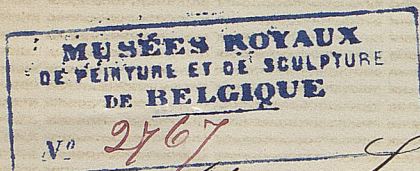 MUSÉES ROYAUX
DE PEINTURE ET DE SCULPTURE
DE BELGIQUE
Nº 2767